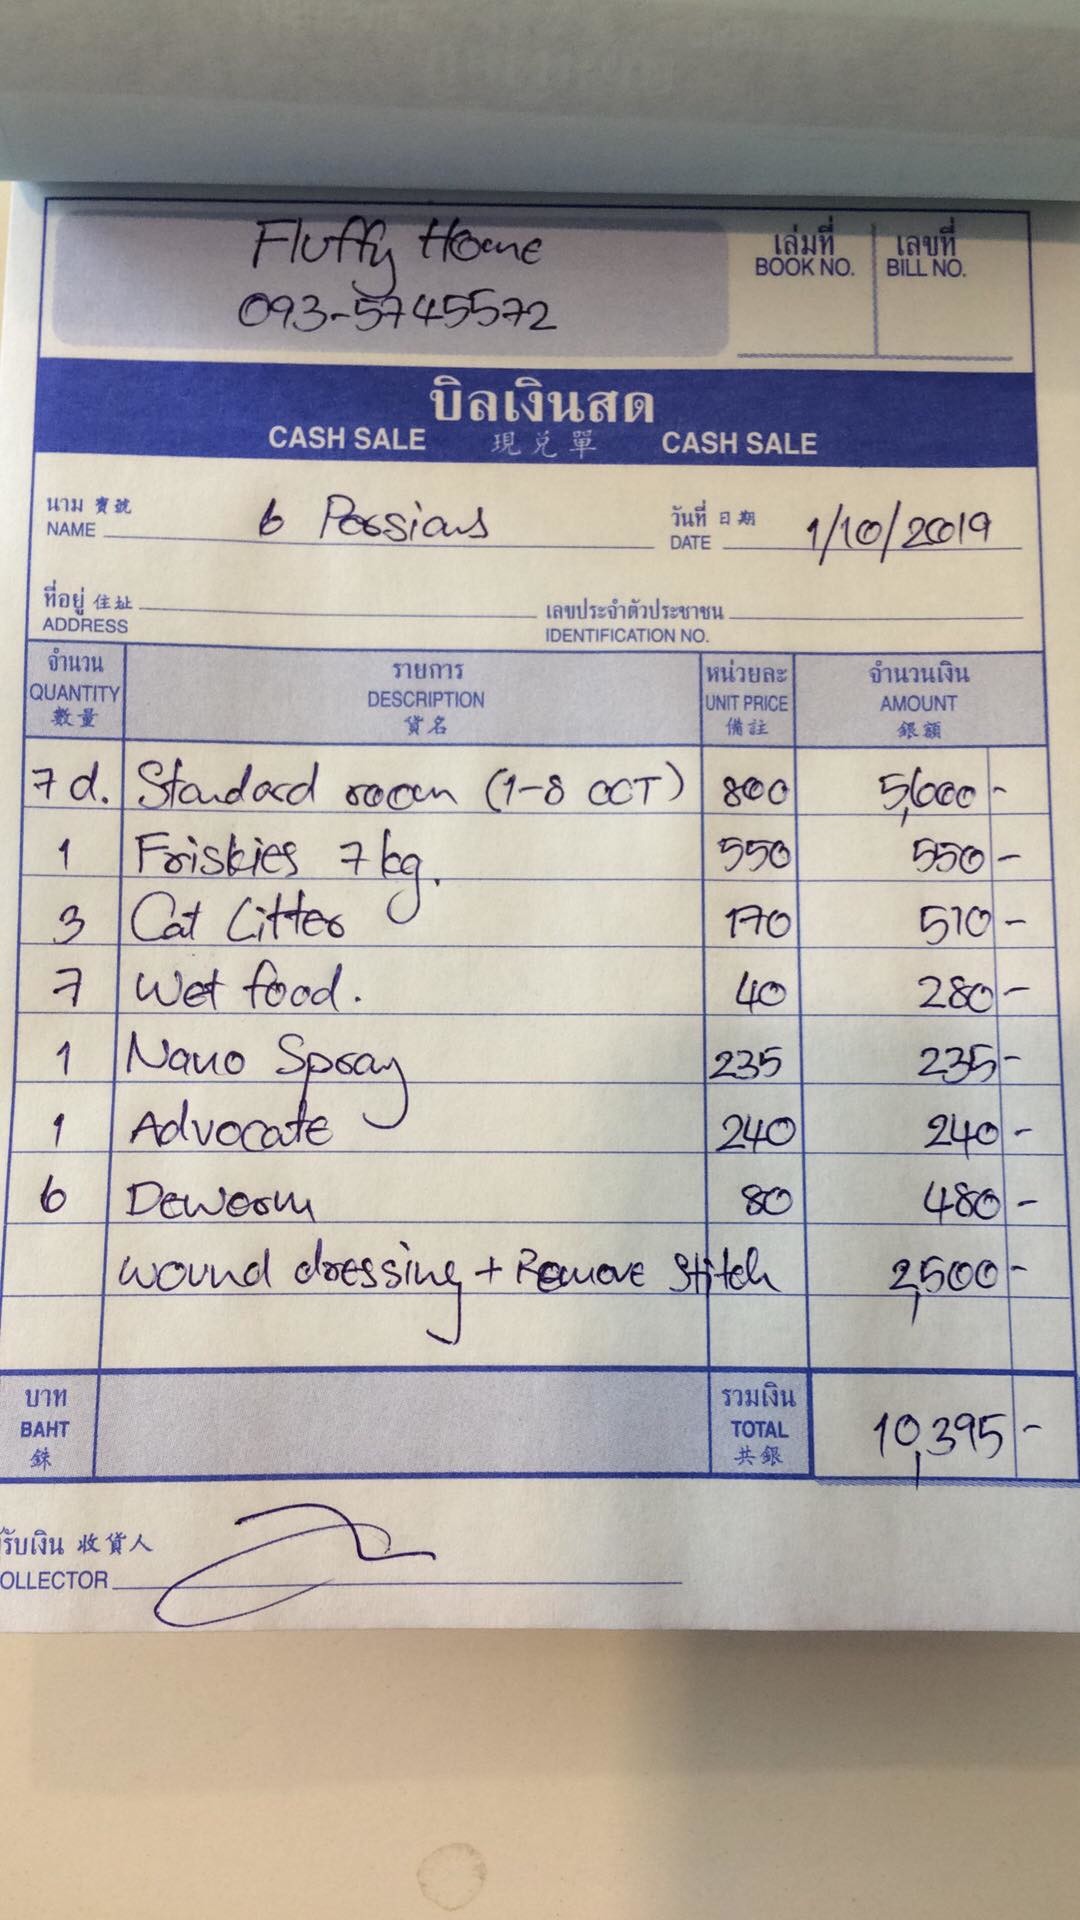 Fluffy Home
093-5745572
เล่มที่ เลขที่
BOOK NO. BILL NO.
บิลเงินสด
CASH SALE 現兌單 CASH SALE
นาม 寶號 6 Persians วันที่ 日期 1/10/2019
NAME DATE
ที่อยู่ 住址 เลขประจำตัวประชาชน
ADDRESS IDENTIFICATION NO.
จำนวน รายการ หน่วยละ จำนวนเงิน
QUANTITY DESCRIPTION UNIT PRICE AMOUNT
數量 貨名 備註 銀額
7 d. Standard room (1-8 OCT) 800 5,600 -
1 Friskies 7 kg. 550 550 -
3 Cat Litter 170 510 -
7 Wet food. 40 280 -
1 Nano Spray 235 235 -
1 Advocate 240 240 -
6 Deworm 80 480 -
wound dressing + Remove Stitch 2,500 -
บาท รวมเงิน
BAHT TOTAL 10,395 -
銖 共銀
รับเงิน 收貨人
OLLECTOR